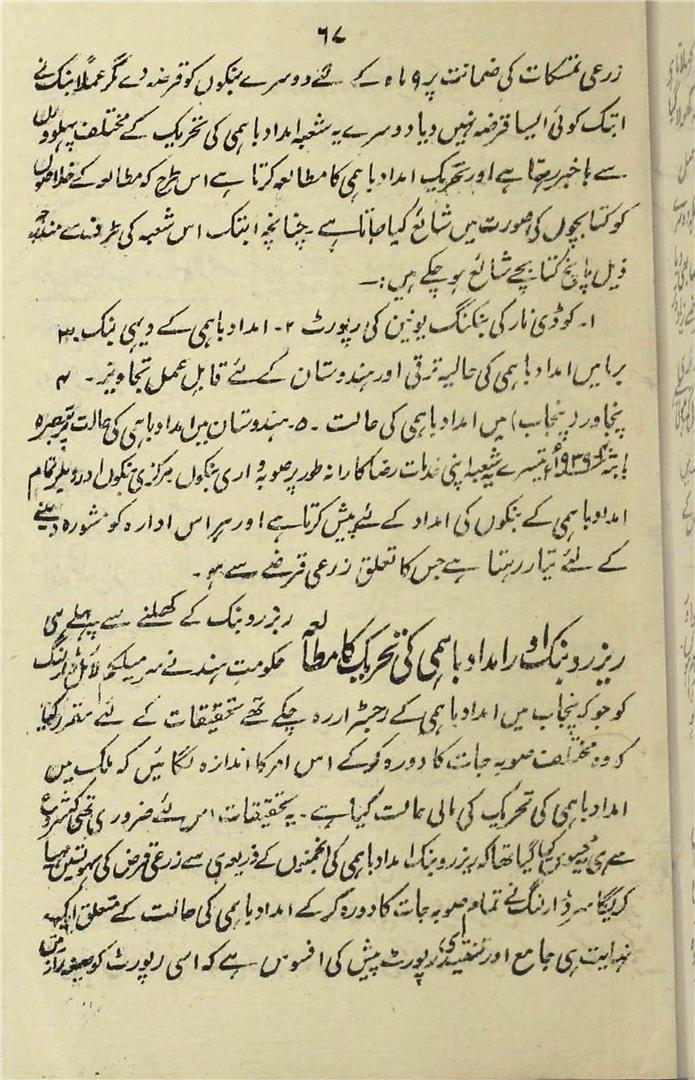 ۶۷
زرعی تمسکات کی ضمانت پر ۹ ماہ کے لئے دوسرے بنکوں کو قرضہ دے مگر عملاً بنک نے
ابتک کوئی ایسا قرضہ نہیں دیا دوسرے یہ شعبہ امداد باہمی کی تحریک کے مختلف پہلووں
سے باخبر رہتا ہے اور تحریک امداد باہمی کا مطالعہ کرتا ہے اس طرح کہ مطالعہ کے خلاصوں
کو کتابچوں کی صورت میں شائع کیا جاتا ہے ۔ چنانچہ ابتک اس شعبہ کی طرف سے مندرجہ
ذیل پانچ کتابچے شائع ہو چکے ہیں :۔
۱۔ کوڈی نار کی بنکنگ یونین کی رپورٹ ۲۔ امداد باہمی کے دیہی بنک ۔ ۳
برما میں امداد باہمی کی حالیہ ترقی اور ہندوستان کے لئے قابل عمل تجاویز ۔ ۴
پنجاور (پنجاب) میں امداد باہمی کی حالت ۔ ۵۔ ہندوستان میں امداد باہمی کی حالت پر تبصرہ
تیسرے یہ شعبہ اپنی خدمات رضاکارانہ طور پر صوبہ واری بنکوں مرکزی بنکوں اور دیگر تمام
امداد باہمی کے بنکوں کی امداد کے لئے پیش کرتا ہے اور ہر اس ادارہ کو مشورہ دینے
کے لئے تیار رہتا ہے جس کا تعلق زرعی قرضے سے ہو ۔
ریزرو بنک اور امداد باہمی کی تحریک کا مطالعہ ریزرو بنک کے کھلنے سے پہلے ہی
حکومت ہند نے سر میلکم لائل ڈارلنگ
کو جو کہ پنجاب میں امداد باہمی کے رجسٹرار رہ چکے تھے تحقیقات کے لئے مقرر کیا
کہ وہ مختلف صوبہ جات کا دورہ کر کے اس امر کا اندازہ لگائیں کہ ملک میں
امداد باہمی کی تحریک کی مالی حالت کیا ہے ۔ یہ تحقیقات اس لئے ضروری تھی کہ شروع
سے ہی محسوس کیا گیا تھا کہ ریزرو بنک امداد باہمی کی انجمنوں کے ذریعہ ہی سے زرعی قرض کی سہولتیں مہیا
کریگا سر ڈارلنگ نے تمام صوبہ جات کا دورہ کر کے امداد باہمی کی حالت کے متعلق ایک
نہایت ہی جامع اور تنقیدی رپورٹ پیش کی افسوس ہے کہ اسی رپورٹ کو صیغہ راز میں